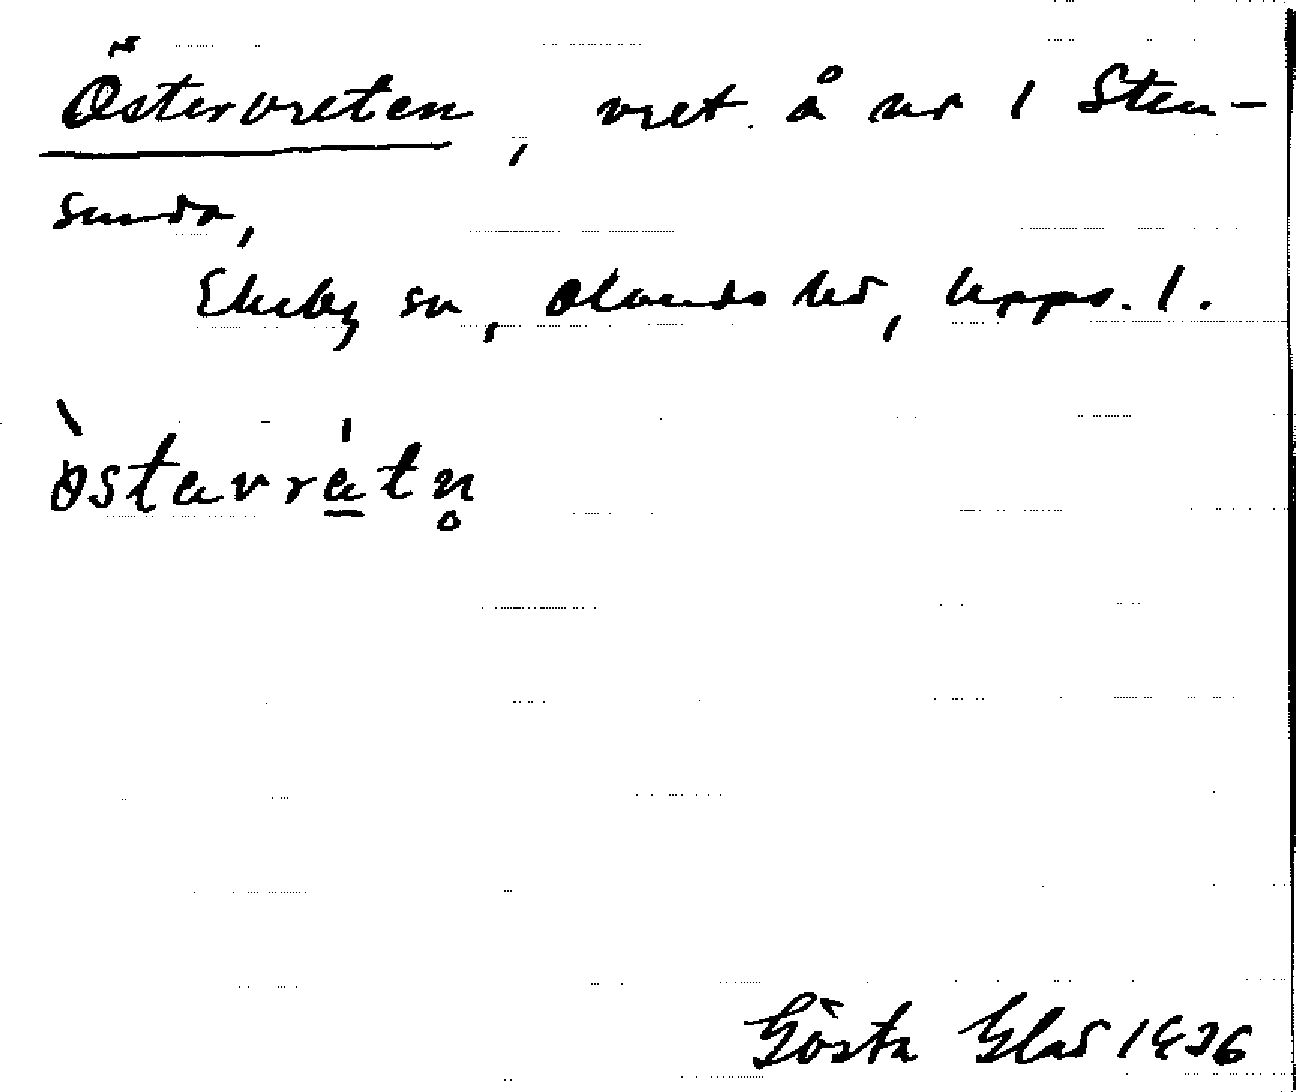 Östervreten, vret å nr 1 Sten-
sunda,
Ekeby sn, Olands hd, Upps. l.
östavrätn̥
Gösta Glad 1936